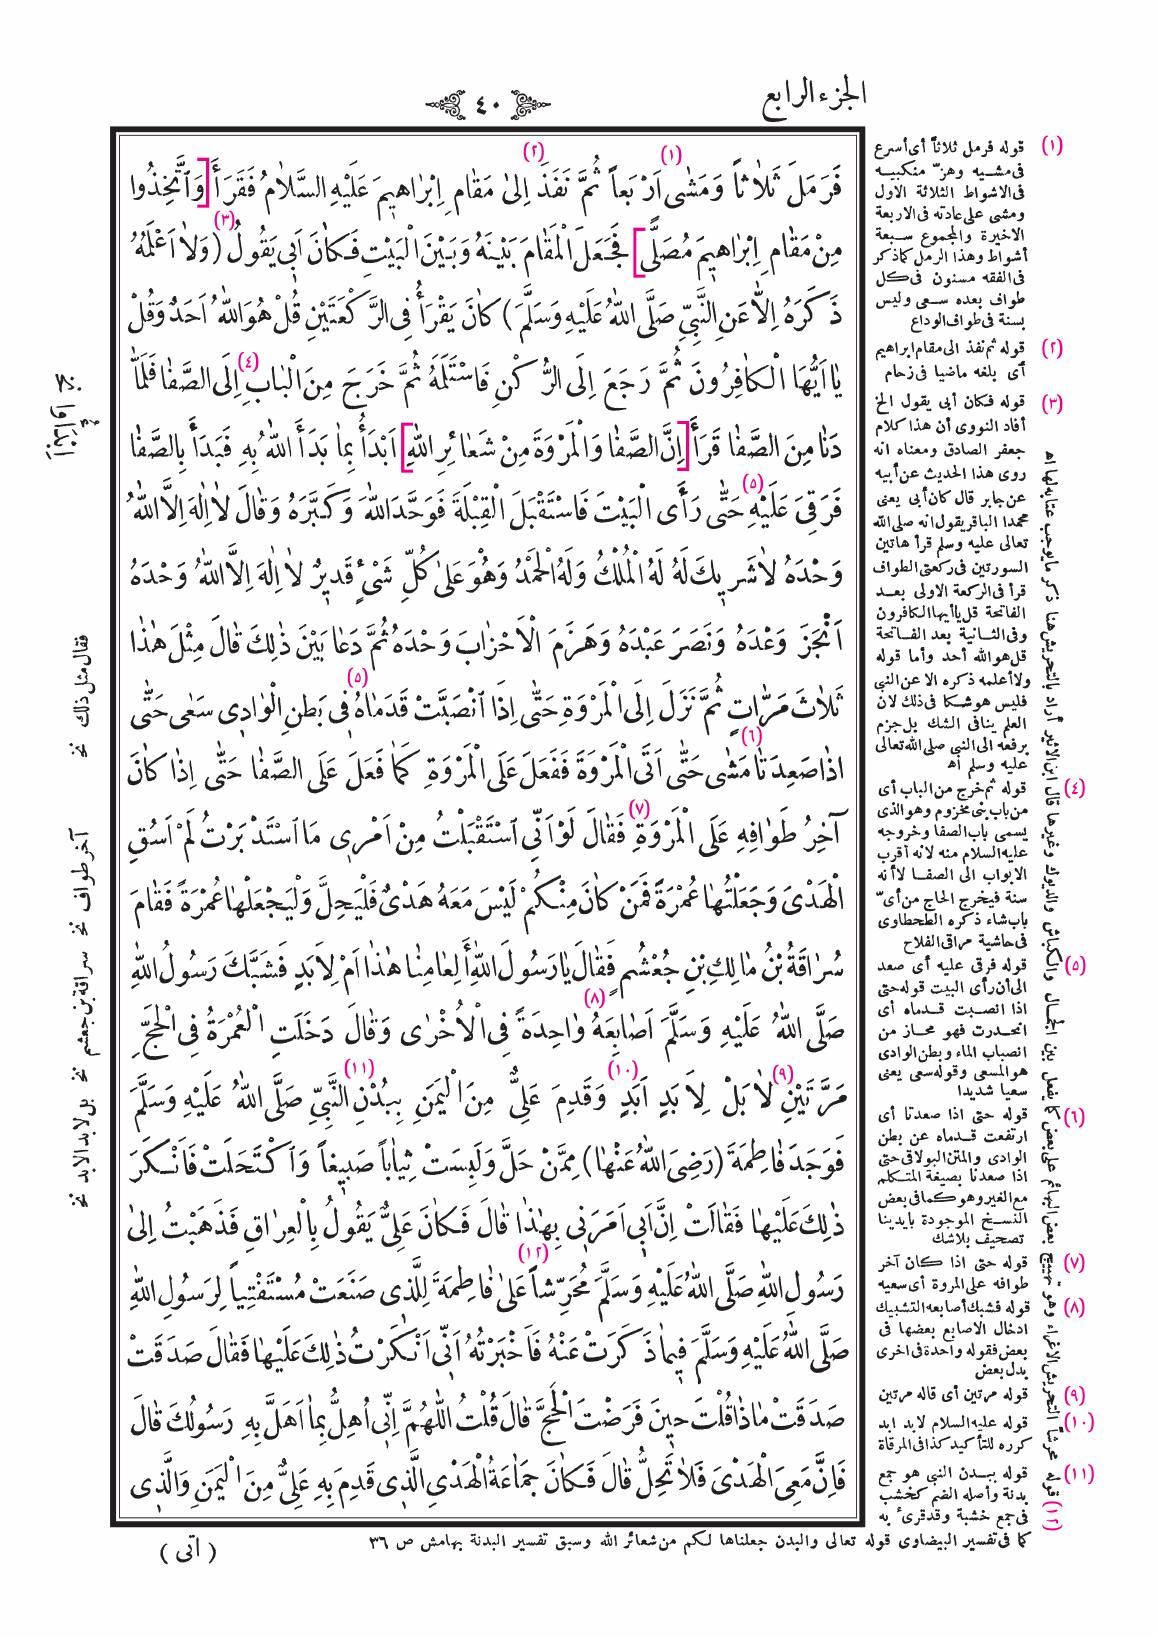 الجزء الرابع
٤٠
فَرَمَلَ ثَلَاثاً وَمَشٰى اَرْبَعاً ثُمَّ نَفَذَ اِلٰى مَقَامِ اِبْرَاهِيمَ عَلَيْهِ السَّلَامُ فَقَرَأَ [وَاتَّخِذُوا
مِنْ مَقَامِ اِبْرَاهِيمَ مُصَلًّى] فَجَعَلَ الْمَقَامَ بَيْنَهُ وَبَيْنَ الْبَيْتِ فَكَانَ اَبِى يَقُولُ (وَلَا اَعْلَمُهُ
ذَكَرَهُ اِلَّا عَنِ النَّبِيِّ صَلَّى اللهُ عَلَيْهِ وَسَلَّمَ) كَانَ يَقْرَأُ فِى الرَّكْعَتَيْنِ قُلْ هُوَ اللهُ اَحَدٌ وَقُلْ
يَا اَيُّهَا الْكَافِرُونَ ثُمَّ رَجَعَ اِلَى الرُّكْنِ فَاسْتَلَمَهُ ثُمَّ خَرَجَ مِنَ الْبَابِ اِلَى الصَّفَا فَلَمَّا
دَنَا مِنَ الصَّفَا قَرَأَ [اِنَّ الصَّفَا وَالْمَرْوَةَ مِنْ شَعَائِرِ اللهِ] اَبْدَأُ بِمَا بَدَأَ اللهُ بِهِ فَبَدَأَ بِالصَّفَا
فَرَقِىَ عَلَيْهِ حَتّٰى رَأَى الْبَيْتَ فَاسْتَقْبَلَ الْقِبْلَةَ فَوَحَّدَ اللهَ وَكَبَّرَهُ وَقَالَ لَا اِلٰهَ اِلَّا اللهُ
وَحْدَهُ لَا شَرِيكَ لَهُ لَهُ الْمُلْكُ وَلَهُ الْحَمْدُ وَهُوَ عَلٰى كُلِّ شَىْءٍ قَدِيرٌ لَا اِلٰهَ اِلَّا اللهُ وَحْدَهُ
اَنْجَزَ وَعْدَهُ وَنَصَرَ عَبْدَهُ وَهَزَمَ الْاَحْزَابَ وَحْدَهُ ثُمَّ دَعَا بَيْنَ ذٰلِكَ قَالَ مِثْلَ هٰذَا
ثَلَاثَ مَرَّاتٍ ثُمَّ نَزَلَ اِلَى الْمَرْوَةِ حَتّٰى اِذَا انْصَبَّتْ قَدَمَاهُ فِى بَطْنِ الْوَادِى سَعٰى حَتّٰى
اِذَا صَعِدَتَا مَشٰى حَتّٰى اَتَى الْمَرْوَةَ فَفَعَلَ عَلَى الْمَرْوَةِ كَمَا فَعَلَ عَلَى الصَّفَا حَتّٰى اِذَا كَانَ
آخِرُ طَوَافِهِ عَلَى الْمَرْوَةِ فَقَالَ لَوْ اَنِّى اسْتَقْبَلْتُ مِنْ اَمْرِى مَا اسْتَدْبَرْتُ لَمْ اَسُقِ
الْهَدْىَ وَجَعَلْتُهَا عُمْرَةً فَمَنْ كَانَ مِنْكُمْ لَيْسَ مَعَهُ هَدْىٌ فَلْيَحِلَّ وَلْيَجْعَلْهَا عُمْرَةً فَقَامَ
سُرَاقَةُ بْنُ مَالِكِ بْنِ جُعْشُمٍ فَقَالَ يَا رَسُولَ اللهِ أَلِعَامِنَا هٰذَا اَمْ لِاَبَدٍ فَشَبَّكَ رَسُولُ اللهِ
صَلَّى اللهُ عَلَيْهِ وَسَلَّمَ اَصَابِعَهُ وَاحِدَةً فِى الْاُخْرٰى وَقَالَ دَخَلَتِ الْعُمْرَةُ فِى الْحَجِّ
مَرَّتَيْنِ لَا بَلْ لِاَبَدٍ اَبَدٍ وَقَدِمَ عَلِىٌّ مِنَ الْيَمَنِ بِبُدْنِ النَّبِيِّ صَلَّى اللهُ عَلَيْهِ وَسَلَّمَ
فَوَجَدَ فَاطِمَةَ (رَضِىَ اللهُ عَنْهَا) مِمَّنْ حَلَّ وَلَبِسَتْ ثِيَاباً صَبِيغاً وَاكْتَحَلَتْ فَاَنْكَرَ
ذٰلِكَ عَلَيْهَا فَقَالَتْ اِنَّ اَبِى اَمَرَنِى بِهٰذَا قَالَ فَكَانَ عَلِىٌّ يَقُولُ بِالْعِرَاقِ فَذَهَبْتُ اِلٰى
رَسُولِ اللهِ صَلَّى اللهُ عَلَيْهِ وَسَلَّمَ مُحَرِّشاً عَلٰى فَاطِمَةَ لِلَّذِى صَنَعَتْ مُسْتَفْتِياً لِرَسُولِ اللهِ
صَلَّى اللهُ عَلَيْهِ وَسَلَّمَ فِيمَا ذَكَرَتْ عَنْهُ فَاَخْبَرْتُهُ اَنِّى اَنْكَرْتُ ذٰلِكَ عَلَيْهَا فَقَالَ صَدَقَتْ
صَدَقَتْ مَاذَا قُلْتَ حِينَ فَرَضْتَ الْحَجَّ قَالَ قُلْتُ اللّٰهُمَّ اِنِّى اُهِلُّ بِمَا اَهَلَّ بِهِ رَسُولُكَ قَالَ
فَاِنَّ مَعِىَ الْهَدْىَ فَلَا تَحِلُّ قَالَ فَكَانَ جَمَاعَةُ الْهَدْىِ الَّذِى قَدِمَ بِهِ عَلِىٌّ مِنَ الْيَمَنِ وَالَّذِى
(١) قوله فرمل ثلاثاً أى أسرع
فى مشيه وهزّ منكبيه
فى الاشواط الثلاثة الاول
ومشى على عادته فى الاربعة
الاخيرة والمجموع سبعة
أشواط وهذا الرمل كما ذكر
فى الفقه مسنون فى كل
طواف بعده سعى وليس
بسنة فى طواف الوداع
(٢) قوله ثم نفذ الى مقام ابراهيم
أى بلغه ماضيا فى زحام
(٣) قوله فكان أبى يقول الخ
أفاد النووى أن هذا كلام
جعفر الصادق ومعناه انه
روى هذا الحديث عن أبيه
عن جابر قال كان أبى يعنى
محمدا الباقر يقول انه صلى الله
تعالى عليه وسلم قرأ هاتين
السورتين فى ركعتى الطواف
قرأ فى الركعة الاولى بعد
الفاتحة قل ياأيها الكافرون
وفى الثانية بعد الفاتحة
قل هو الله أحد وأما قوله
ولا أعلمه ذكره الا عن النبى
فليس هو شكا فى ذلك لان
العلم ينافى الشك بل جزم
برفعه الى النبى صلى الله تعالى
عليه وسلم اه
(٤) قوله ثم خرج من الباب أى
من باب بنى مخزوم وهو الذى
يسمى باب الصفا وخروجه
عليه السلام منه لانه أقرب
الابواب الى الصفا لا أنه
سنة فيخرج الحاج من أىّ
باب شاء ذكره الطحطاوى
فى حاشية مراقى الفلاح
(٥) قوله فرقى عليه أى صعد
الى أن رأى البيت قوله حتى
اذا انصبت قدماه أى
انحدرت فهو مجاز من
انصباب الماء وبطن الوادى
هو المسعى وقوله سعى يعنى
سعيا شديدا
(٦) قوله حتى اذا صعدتا أى
ارتفعت قدماه عن بطن
الوادى والمتن البولاقى حتى
اذا صعدنا بصيغة المتكلم
مع الغير وهو كما فى بعض
النسخ الموجودة بايدينا
تصحيف بلاشك
(٧) قوله حتى اذا كان آخر
طوافه على المروة أى سعيه
(٨) قوله فشبك أصابعه التشبيك
ادخال الاصابع بعضها فى
بعض فقوله واحدة فى اخرى
بدل بعض
(٩) قوله مرتين أى قاله مرتين
(١٠) قوله عليه السلام لابد ابد
كرره للتأكيد كذا فى المرقاة
(١١) قوله ببدن النبى هو جمع
بدنة وأصله الضم كخشب
فى جمع خشبة وقد قرىء به
كما فى تفسير البيضاوى قوله تعالى والبدن جعلناها لكم من شعائر الله وسبق تفسير البدنة بهامش ص ٣٦
(١٢) قوله محرشاً التحريش الاغراء وهو تهييج بعض البهائم على بعض كما يفعل بين الجمال والكباش والديوك وغيرها قال ابن الاثير أراد بالتحريش هنا ذكر ما يوجب عتابه لها اه
اَبْدَأُ نخ
فقال مثل ذلك نخ
آخر طواف نخ
سراقة بن جعشم نخ
بل لابد الابد نخ
( أتى )